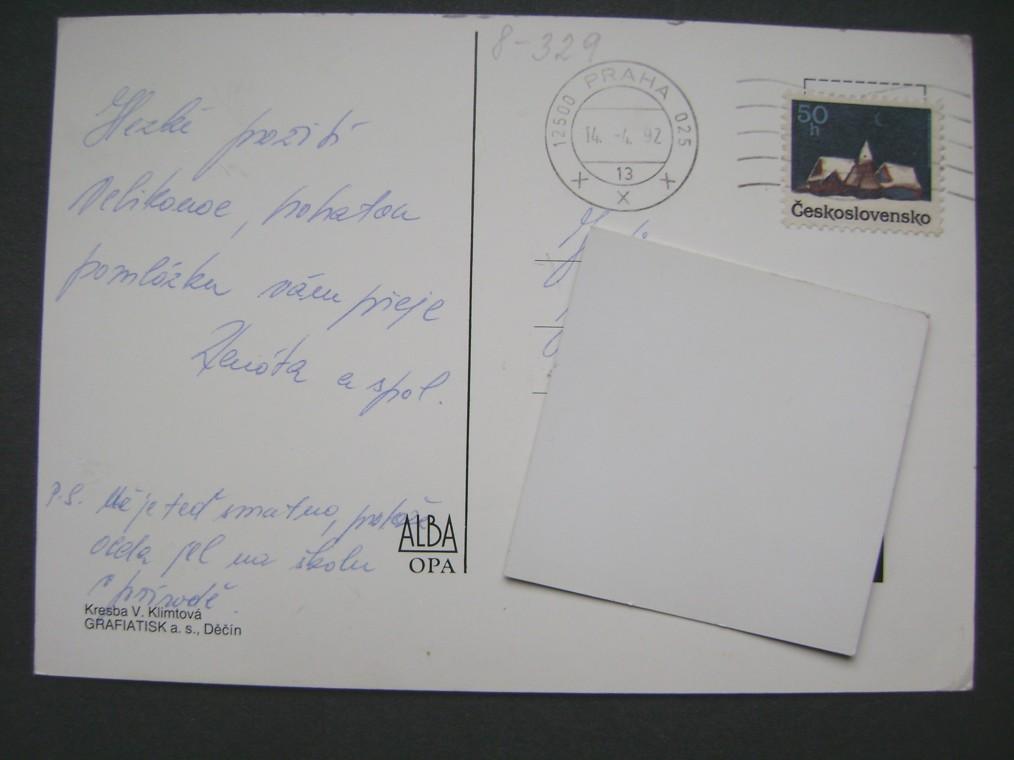 Hezké prožití
Velikonoc, bohatou
pomlázku vám přeje
Renáta a spol.
P.S. Mě je teď smutno, protože
jel na školu
v přírodě.
Kresba V. Klimtová
GRAFIATISK a. s., Děčín
ALBA
OPA
8-329
12500 PRAHA 025
14. -4. 92
13
50
h
Československo